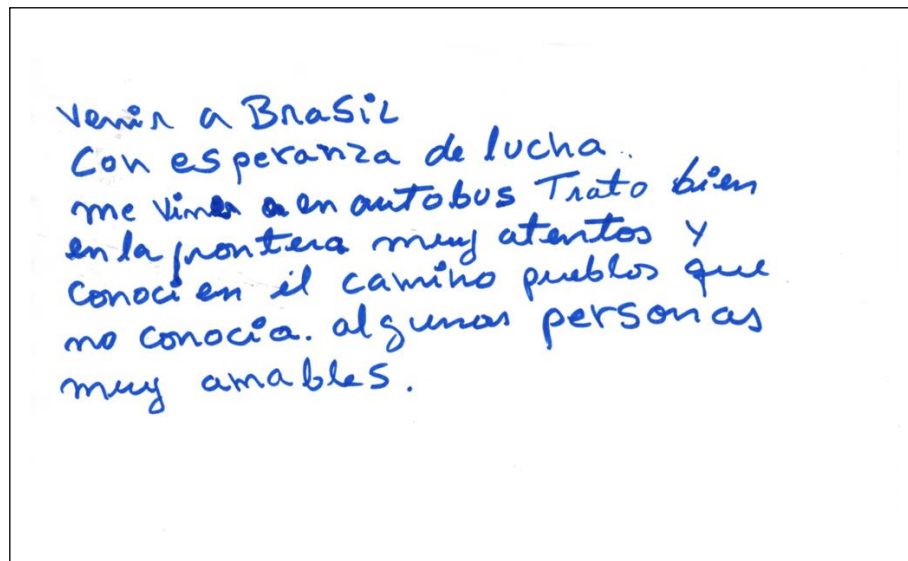 Venir a Brasil
Con esperanza de lucha.
me vine en autobus Trato bien
en la frontera muy atentos y
conoci en el camino pueblos que
no conocia. algunas personas
muy amables.